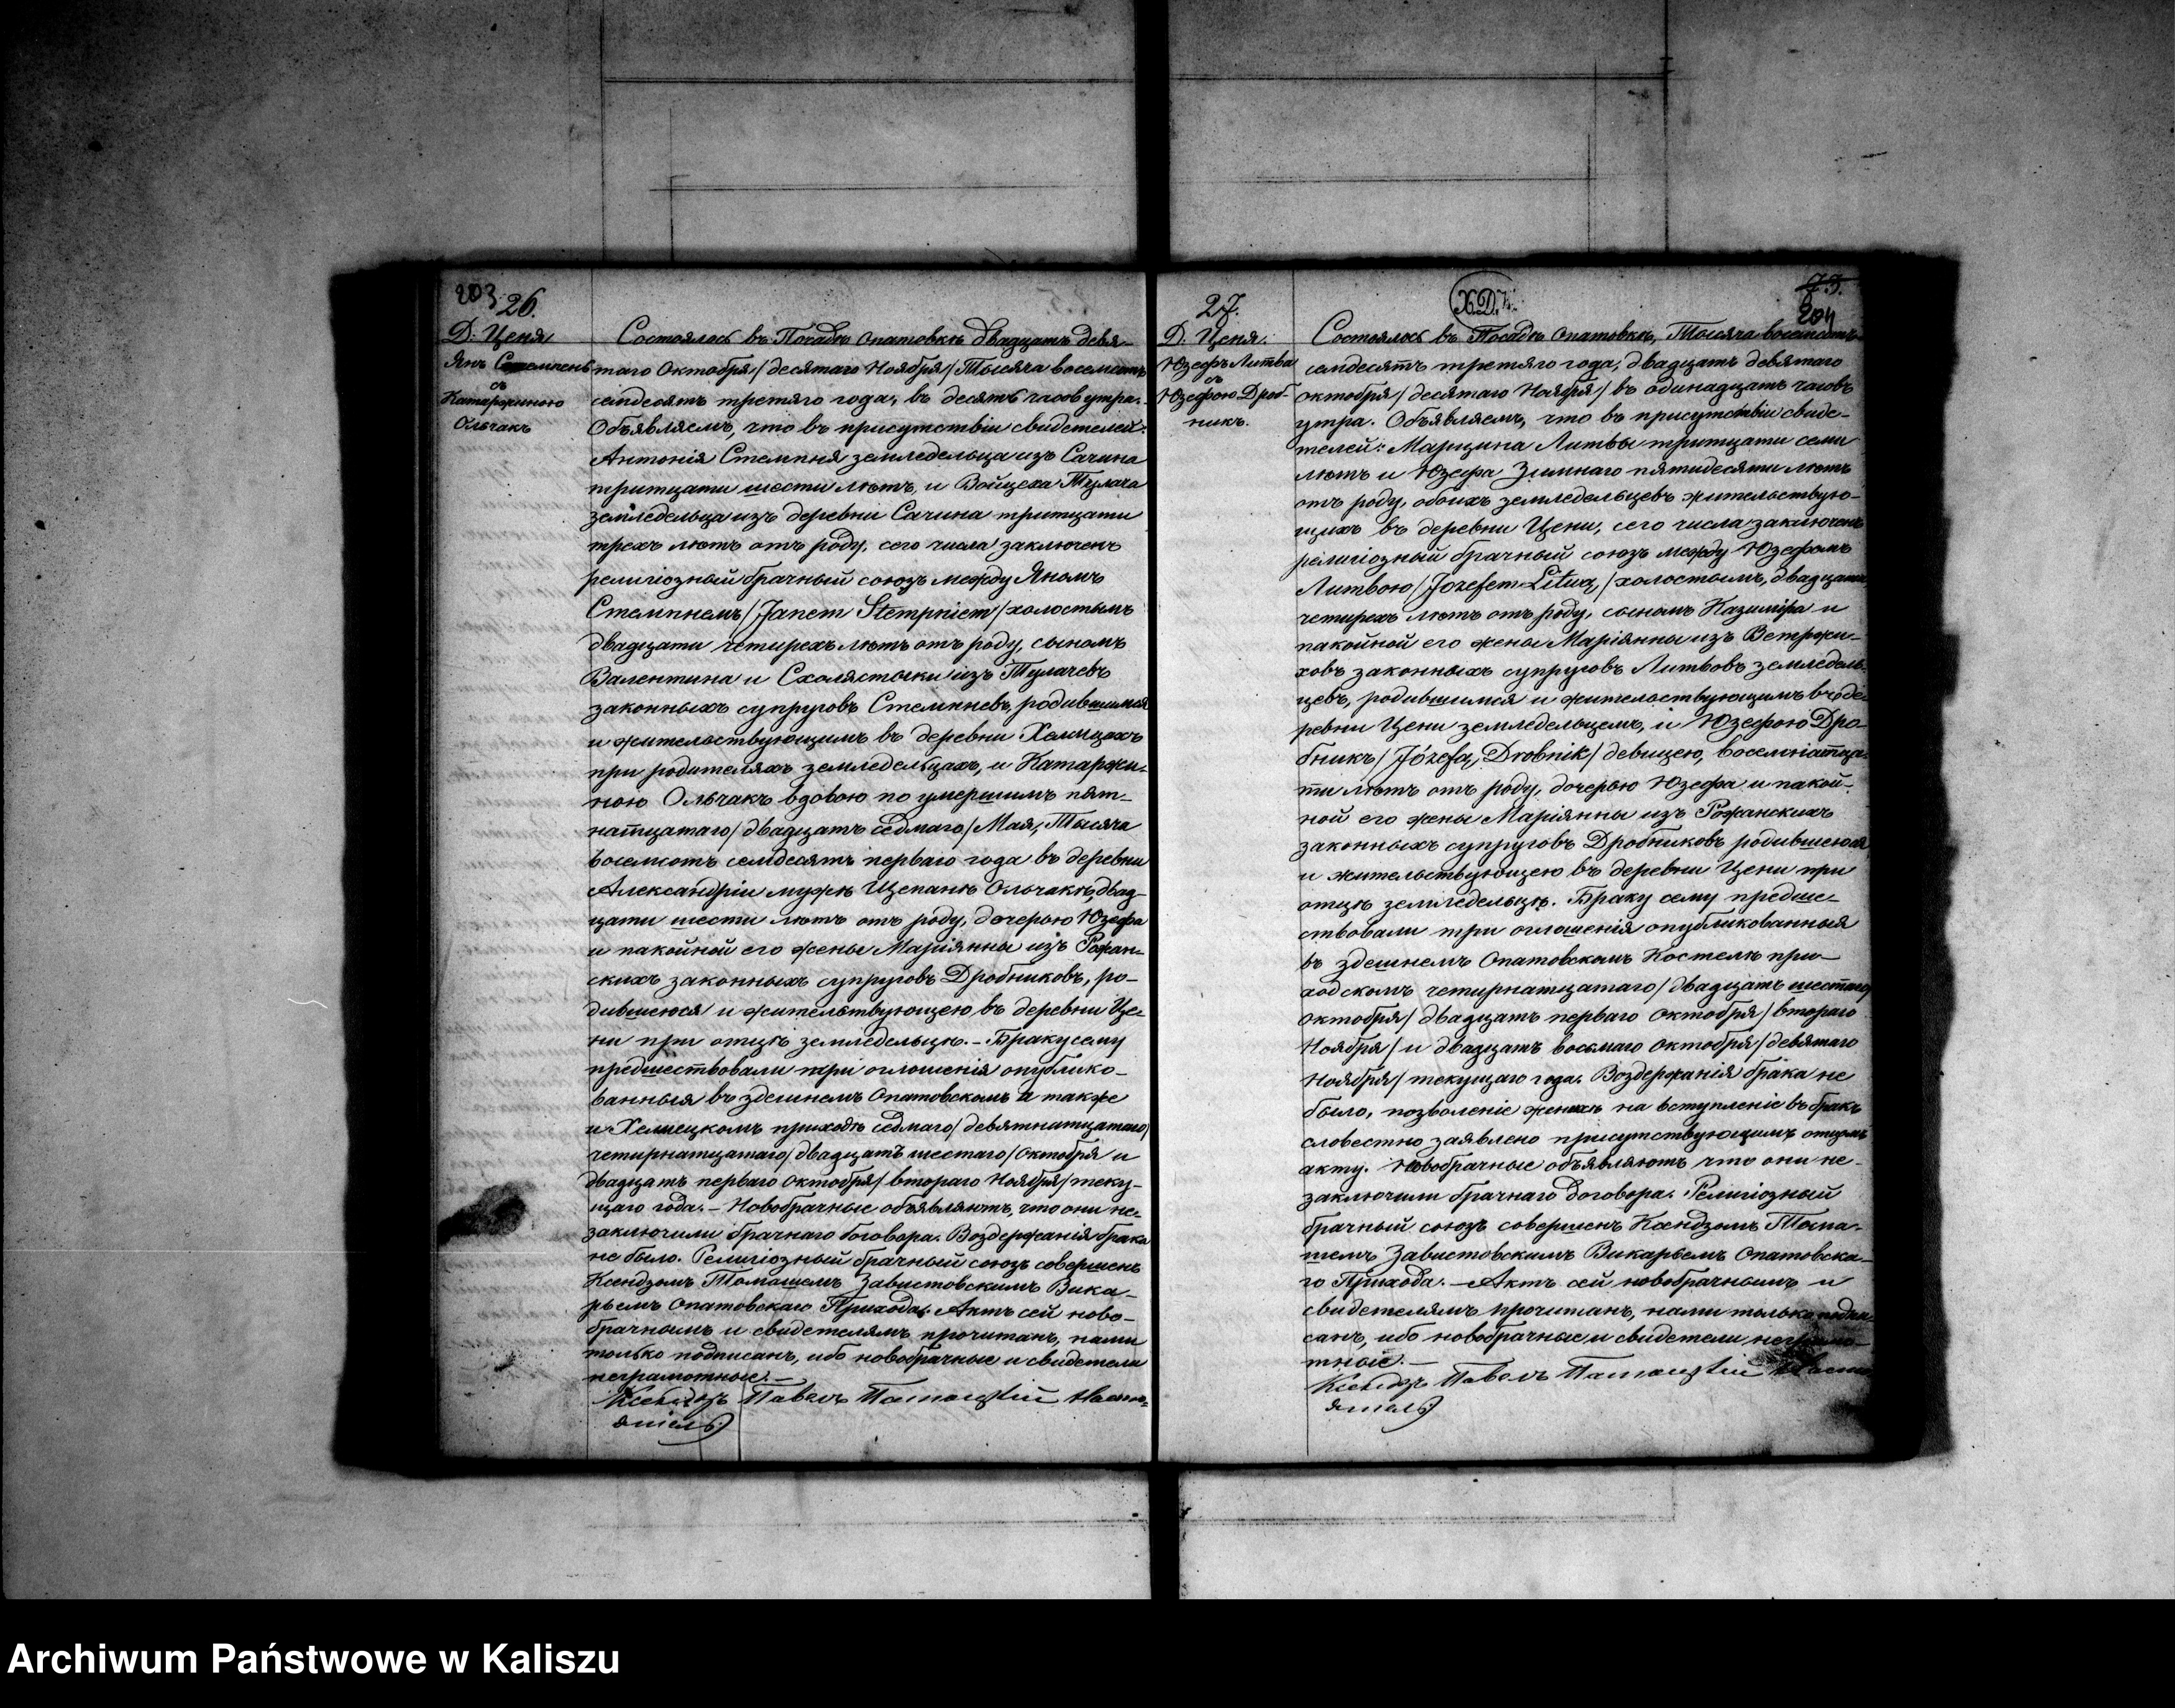 203
26.
Д. Ценя
Янъ Стемпень
съ
Катаржиною
Ольчакъ
Состоялось въ Посадѣ Опатовкѣ двадцать девя-
таго Октобря/десятаго Ноября/Тысяча восемсотъ
семдесятъ третяго года, въ десять часов утра.
Объявляемъ, что въ присутствіи свидетелей:
Антонія Стемпня земледельца изъ Сачина
тритцати шести лѣтъ, и Войцеха Тулача
земледельца изъ деревни Сачина тритцати
трехъ лѣтъ отъ роду, сего числа заключенъ
религіозный брачный союзъ между Яномъ
Стемпнемъ/Janem Stempniem/холостымъ
двадцати четирехъ лѣтъ отъ роду, сыномъ
Валентина и Схолястыки изъ Тулачевъ
законныхъ супруговъ Стемпневъ, родившимся
и жительствующимъ въ деревни Хелмцахъ
при родителяхъ земледельцахъ, и Катаржи-
ною Ольчакъ вдовою по умершимъ пят-
натцатаго/двадцать седмаго/Мая, Тысяча
восемсотъ семдесятъ перваго года въ деревни
Александріи мужѣ Щепанѣ Ольчакѣ, двад-
цати шести лѣтъ отъ роду, дочерью Юзефа
и покойной его жены Маріянны изъ Рожан-
скихъ законныхъ супруговъ Дробниковъ, ро-
дившеюся и жительствующею въ деревни Це-
ни при отцѣ земледельцѣ. - Браку сему
предшествовали три оглошенія опублико-
ванныя въ здешнемъ Опатовскомъ а также
и Хелмецкомъ приходѣ седмаго/девятнатцатаго/
четирнатцатаго/двадцать шестаго/Октобря и
двадцать перваго Октобря/втораго Ноября/теку-
щаго года. - Новобрачные объявляютъ, что они не-
заключили брачнаго договора. Воздержанія брака
не было. Религіозный брачный союзъ совершенъ
Ксендзомъ Томашемъ Завистовскимъ Вика-
рьемъ Опатовскаго Прихода. Актъ сей ново-
брачнымъ и свидетелямъ прочитанъ, нами
только подписанъ, ибо новобрачные и свидетели
неграмотные. -
Ксендзъ Павелъ Насто-
ятель
27.
Х.D.
73.
204
Д. Ценя.
Юзефъ Литва
съ
Юзефою Дроб-
никъ.
Состоялось въ Посадѣ Опатовкѣ, Тысяча восемсотъ
семдесятъ третяго года, двадцать девятаго
октобря/десятаго Ноября/въ одинадцать часовъ
утра. Объявляемъ, что въ присутствіи свиде-
телей: Марцина Литвы тритцати семи
лѣтъ и Юзефа Зимнаго пятидесяти лѣтъ
отъ роду, обоихъ земледельцевъ жительствую-
щихъ въ деревни Цени, сего числа заключенъ
религіозный брачный союзъ между Юзефомъ
Литвою/Jozefem Litwą/холостымъ, двадцати
четирехъ лѣтъ отъ роду, сыномъ Казиміра и
покойной его жены Маріянны изъ Ветржи-
ховъ законныхъ супруговъ Литвовъ земледель-
цевъ, родившимся и жительствующимъ въ де-
ревни Цени земледельцемъ, и Юзефою Дро-
бникъ/Józefą Drobnik/девицею, восемнатца-
ти лѣтъ отъ роду, дочерью Юзефа и покой-
ной его жены Маріянны изъ Рожанскихъ
законныхъ супруговъ Дробниковъ родившеюся
и жительствующею въ деревни Цени при
отцѣ земледельцѣ. Браку сему предше-
ствовали три оглошенія опубликованныя
въ здешнемъ Опатовскомъ Костелѣ при-
ходскомъ четирнатцатаго/двадцать шестаго/
Октобря/двадцать перваго Октобря/втораго
Ноября/и двадцать восмаго Октобря/девятаго
Ноября/текущаго года. Воздержанія брака не
было, позволеніе на вступленіе въ бракъ
словестно заявлено присутствующимъ отцомъ
акту. Новобрачные объявляютъ что они не-
заключили брачнаго договора. Религіозный
брачный союзъ совершенъ Ксендзомъ Тома-
шемъ Завистовскимъ Викарьемъ Опатовска-
го Прихода. - Актъ сей новобрачнымъ и
свидетелямъ прочитанъ, нами только подпи-
санъ, ибо новобрачные и свидетели неграмо-
тные. -
Ксендзъ Павелъ Насто-
ятель
Archiwum Państwowe w Kaliszu